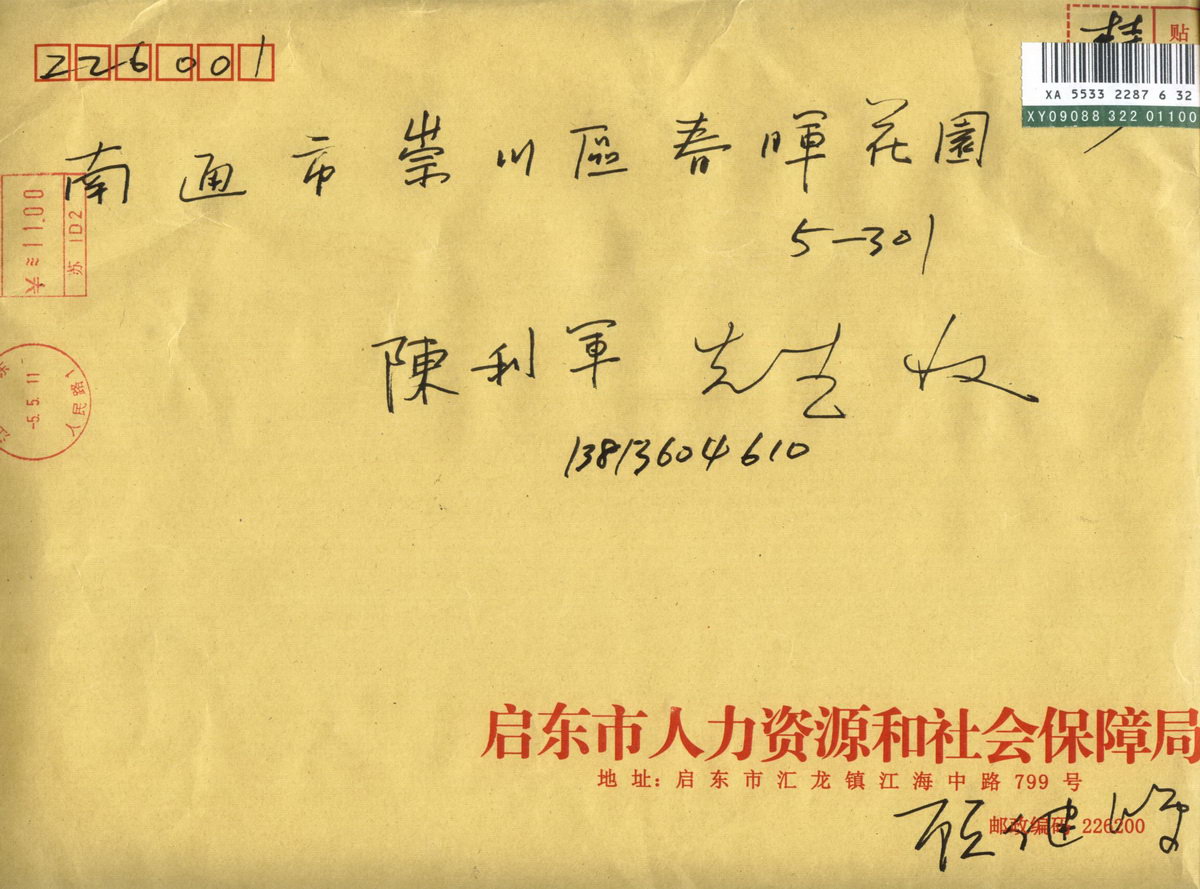 226001
挂
贴
XA 5533 2287 6 32
XY09088 322 01100
南通市崇川區春暉花園
5-301
¥≈11.00
苏 1D2
陳利軍 先生 收
13813604610
-5.5.11
人民路
启东市人力资源和社会保障局
地址: 启东市汇龙镇江海中路 799 号
邮政编码 226200